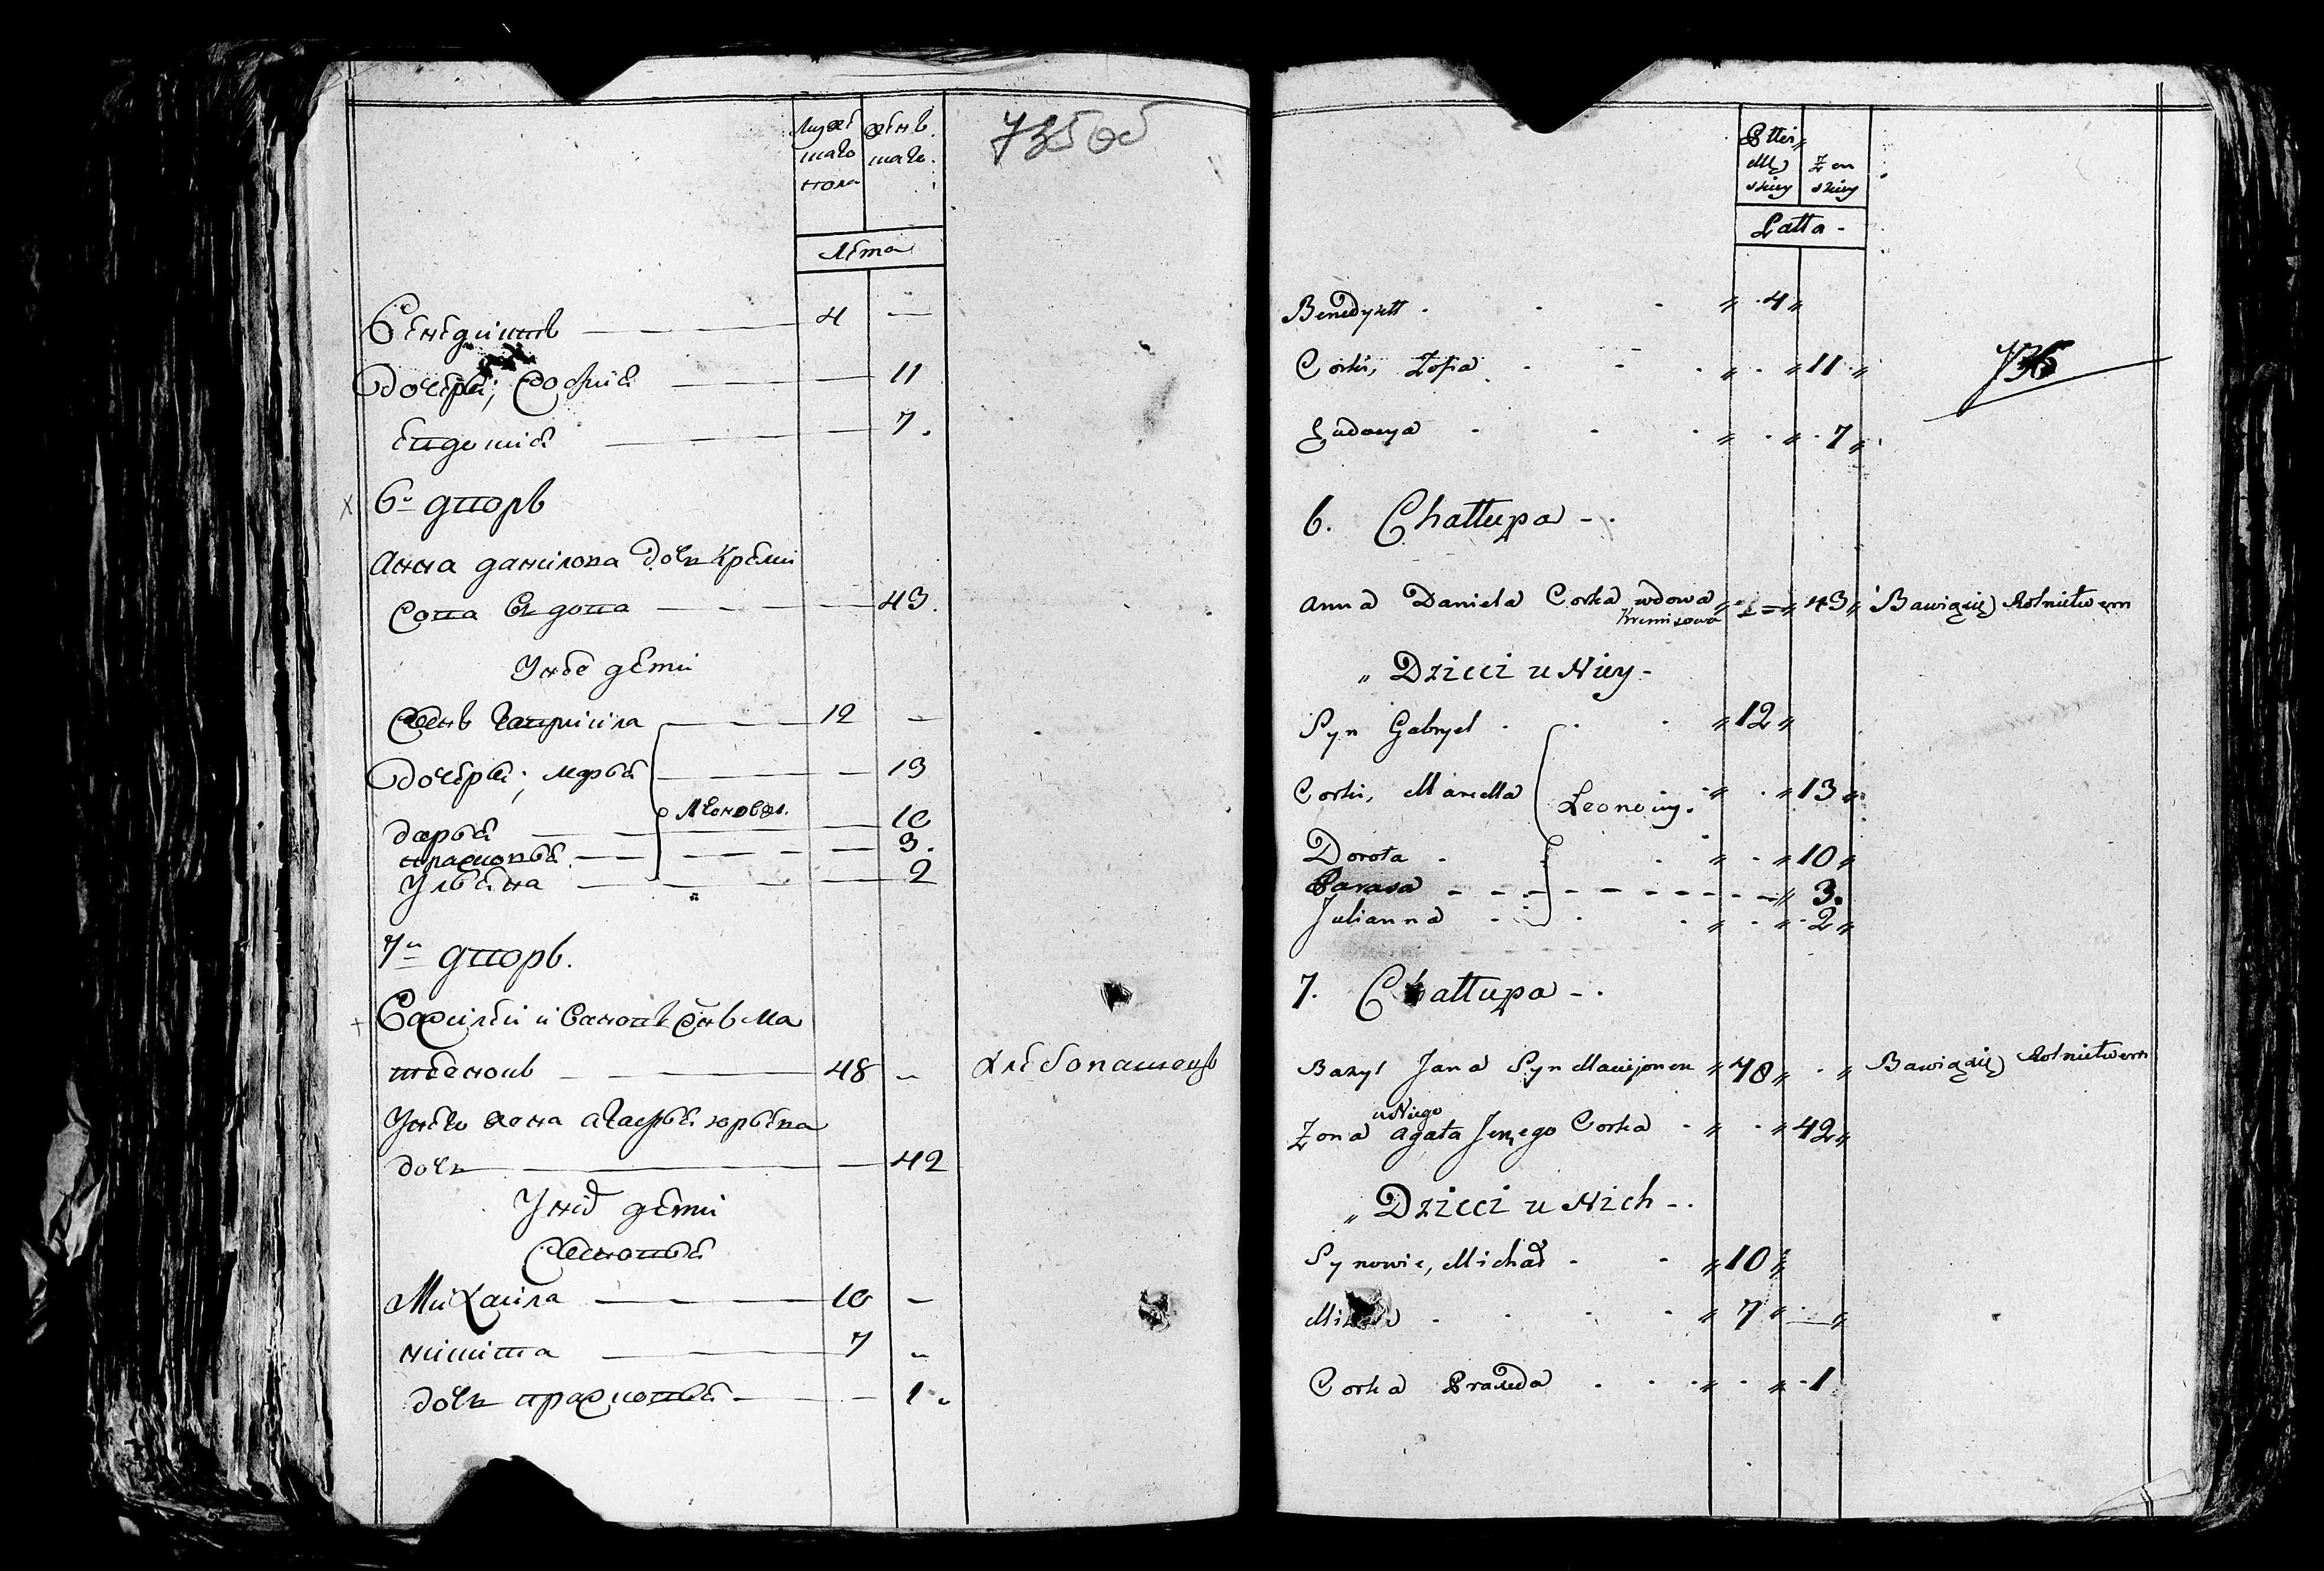 735 об
Мужескаго пола
Женскаго
Лета
Бенедиктъ 4 —
Дочери; Софиа — 11
Евдокиа — 7.
6й дворъ
Анна данилова дочь Креми
сова вдова — 43.
У нее дети
Сынъ гавриила 12 —
Дочери; марья — 13
Леоновы.
дарья — 10
прасковья — 3.
Ульяна — 2
7й дворъ.
Василей иванов сынъ Ма
твеновъ 48 —
хлебопашецъ
У него жена агафья юрьева
дочь — 42
У них дети
Сыновья
Михаила 10 —
никита 7 —
дочь прасковья — 1
Płci
Mę
skiey
Żen
skiey
Latta -
Benedyktt 4
Corki, Zofia 11
736
Eudocya 7
6. Chattupa -.
Anna Daniela Corka wdowa 43 Bawiąsię Rolnictwem
Kremisowa
" Dzieci u Niey -
Syn Gabryel 12
Corki, Marella 13
Leonowy.
Dorota 10
Parasa 3.
Julianna 2
7. Chattupa -.
Bazyl Jana Syn Maciejonek 48 Bawiąsię Rolnictwem
u Niego
Żona Agata Jerzego Corka 42
" Dzieci u Nich -.
Synowie, Michał 10
7
Corka Praxeda 1